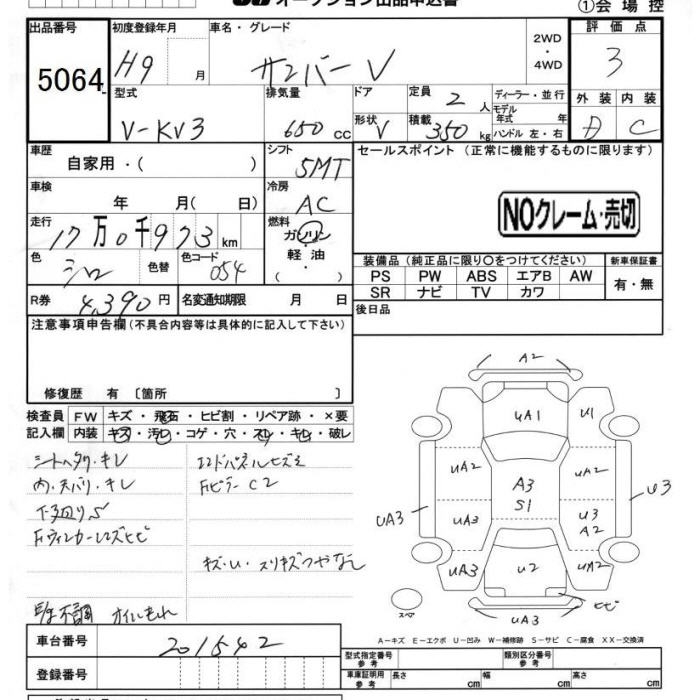 オークション出品申込書
①会場控
出品番号 5064
初度登録年月 H9 月
車名・グレード サンバーV
2WD・4WD
評価点 3
型式 V-KV3
排気量 650 cc
ドア
形状 V
定員 2 人
積載 350 kg
ディーラー・並行
モデル年式 年
ハンドル 左・右
外装 D
内装 C
車歴 自家用・( )
シフト 5MT
セールスポイント (正常に機能するものに限ります)
車検 年 月( 日)
冷房 AC
NOクレーム・売切
走行 17万0千973km
燃料 ガソリン・軽油・( )
色 シロ 色替 色コード 054
装備品 (純正品に限り○をつけてください)
新車保証書
PS PW ABS エアB AW
有・無
SR ナビ TV カワ
R券 4,390円
名変通知期限 月 日
後日品
注意事項申告欄(不具合内容等は具体的に記入して下さい)
修復歴 有 〔箇所 〕
検査員記入欄
FW キズ・飛石・ヒビ割・リペア跡・×要
内装 キズ・汚し・コゲ・穴・スレ・キレ・破レ
シートヘタリ・キレ
内・天バリ・キレ
下廻りS
Fウィンカーレンズヒビ
エンドパネルヒズミ
FピラーC2
キズ・U・スリキズつやなし
不調 オイルもれ
A2
UA1
U1
UA2
UA2
A3
S1
U3
UA3
UA3
U3
A2
UA3
U2
UA2
スペア
ヒビ
UA3
A-キズ E-エクボ U-凹み W-補修跡 S-サビ C-腐食 XX-交換済
車台番号 201542
登録番号
型式指定番号 参考
類別区分番号 参考
車庫証明用 参考
長さ cm
幅 cm
高さ cm